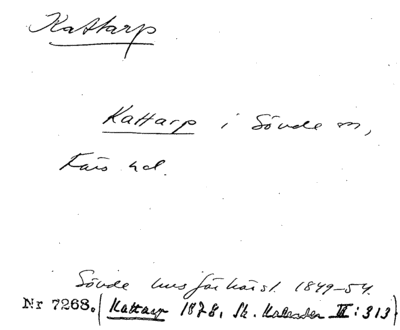 Kattarp
Kattarp i Sövde sn,
Färs hd.
Sövde husförhörsl. 1849-54.
Nr 7268. (Kattarp 1878, Sk. Kalender III:313)